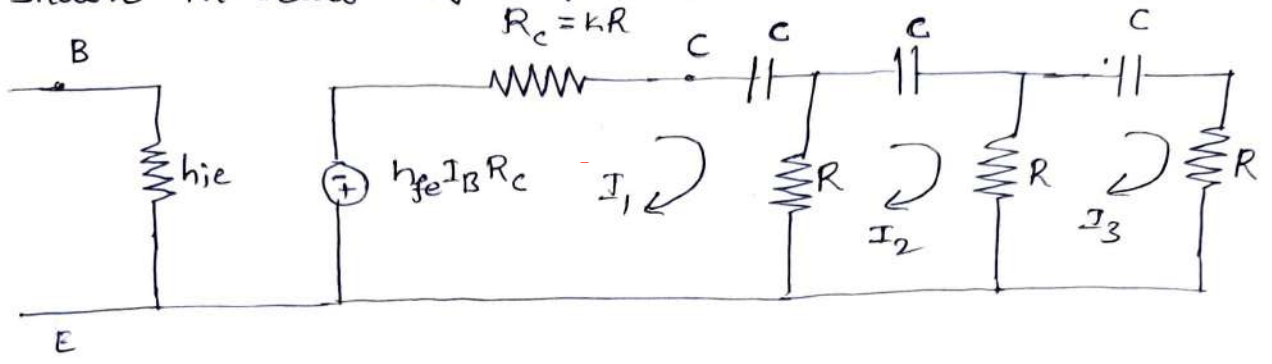 R_c = kR
B
C
C
C
C
h_ie
- +
h_fe I_B R_C
I_1
R
I_2
R
I_3
R
E